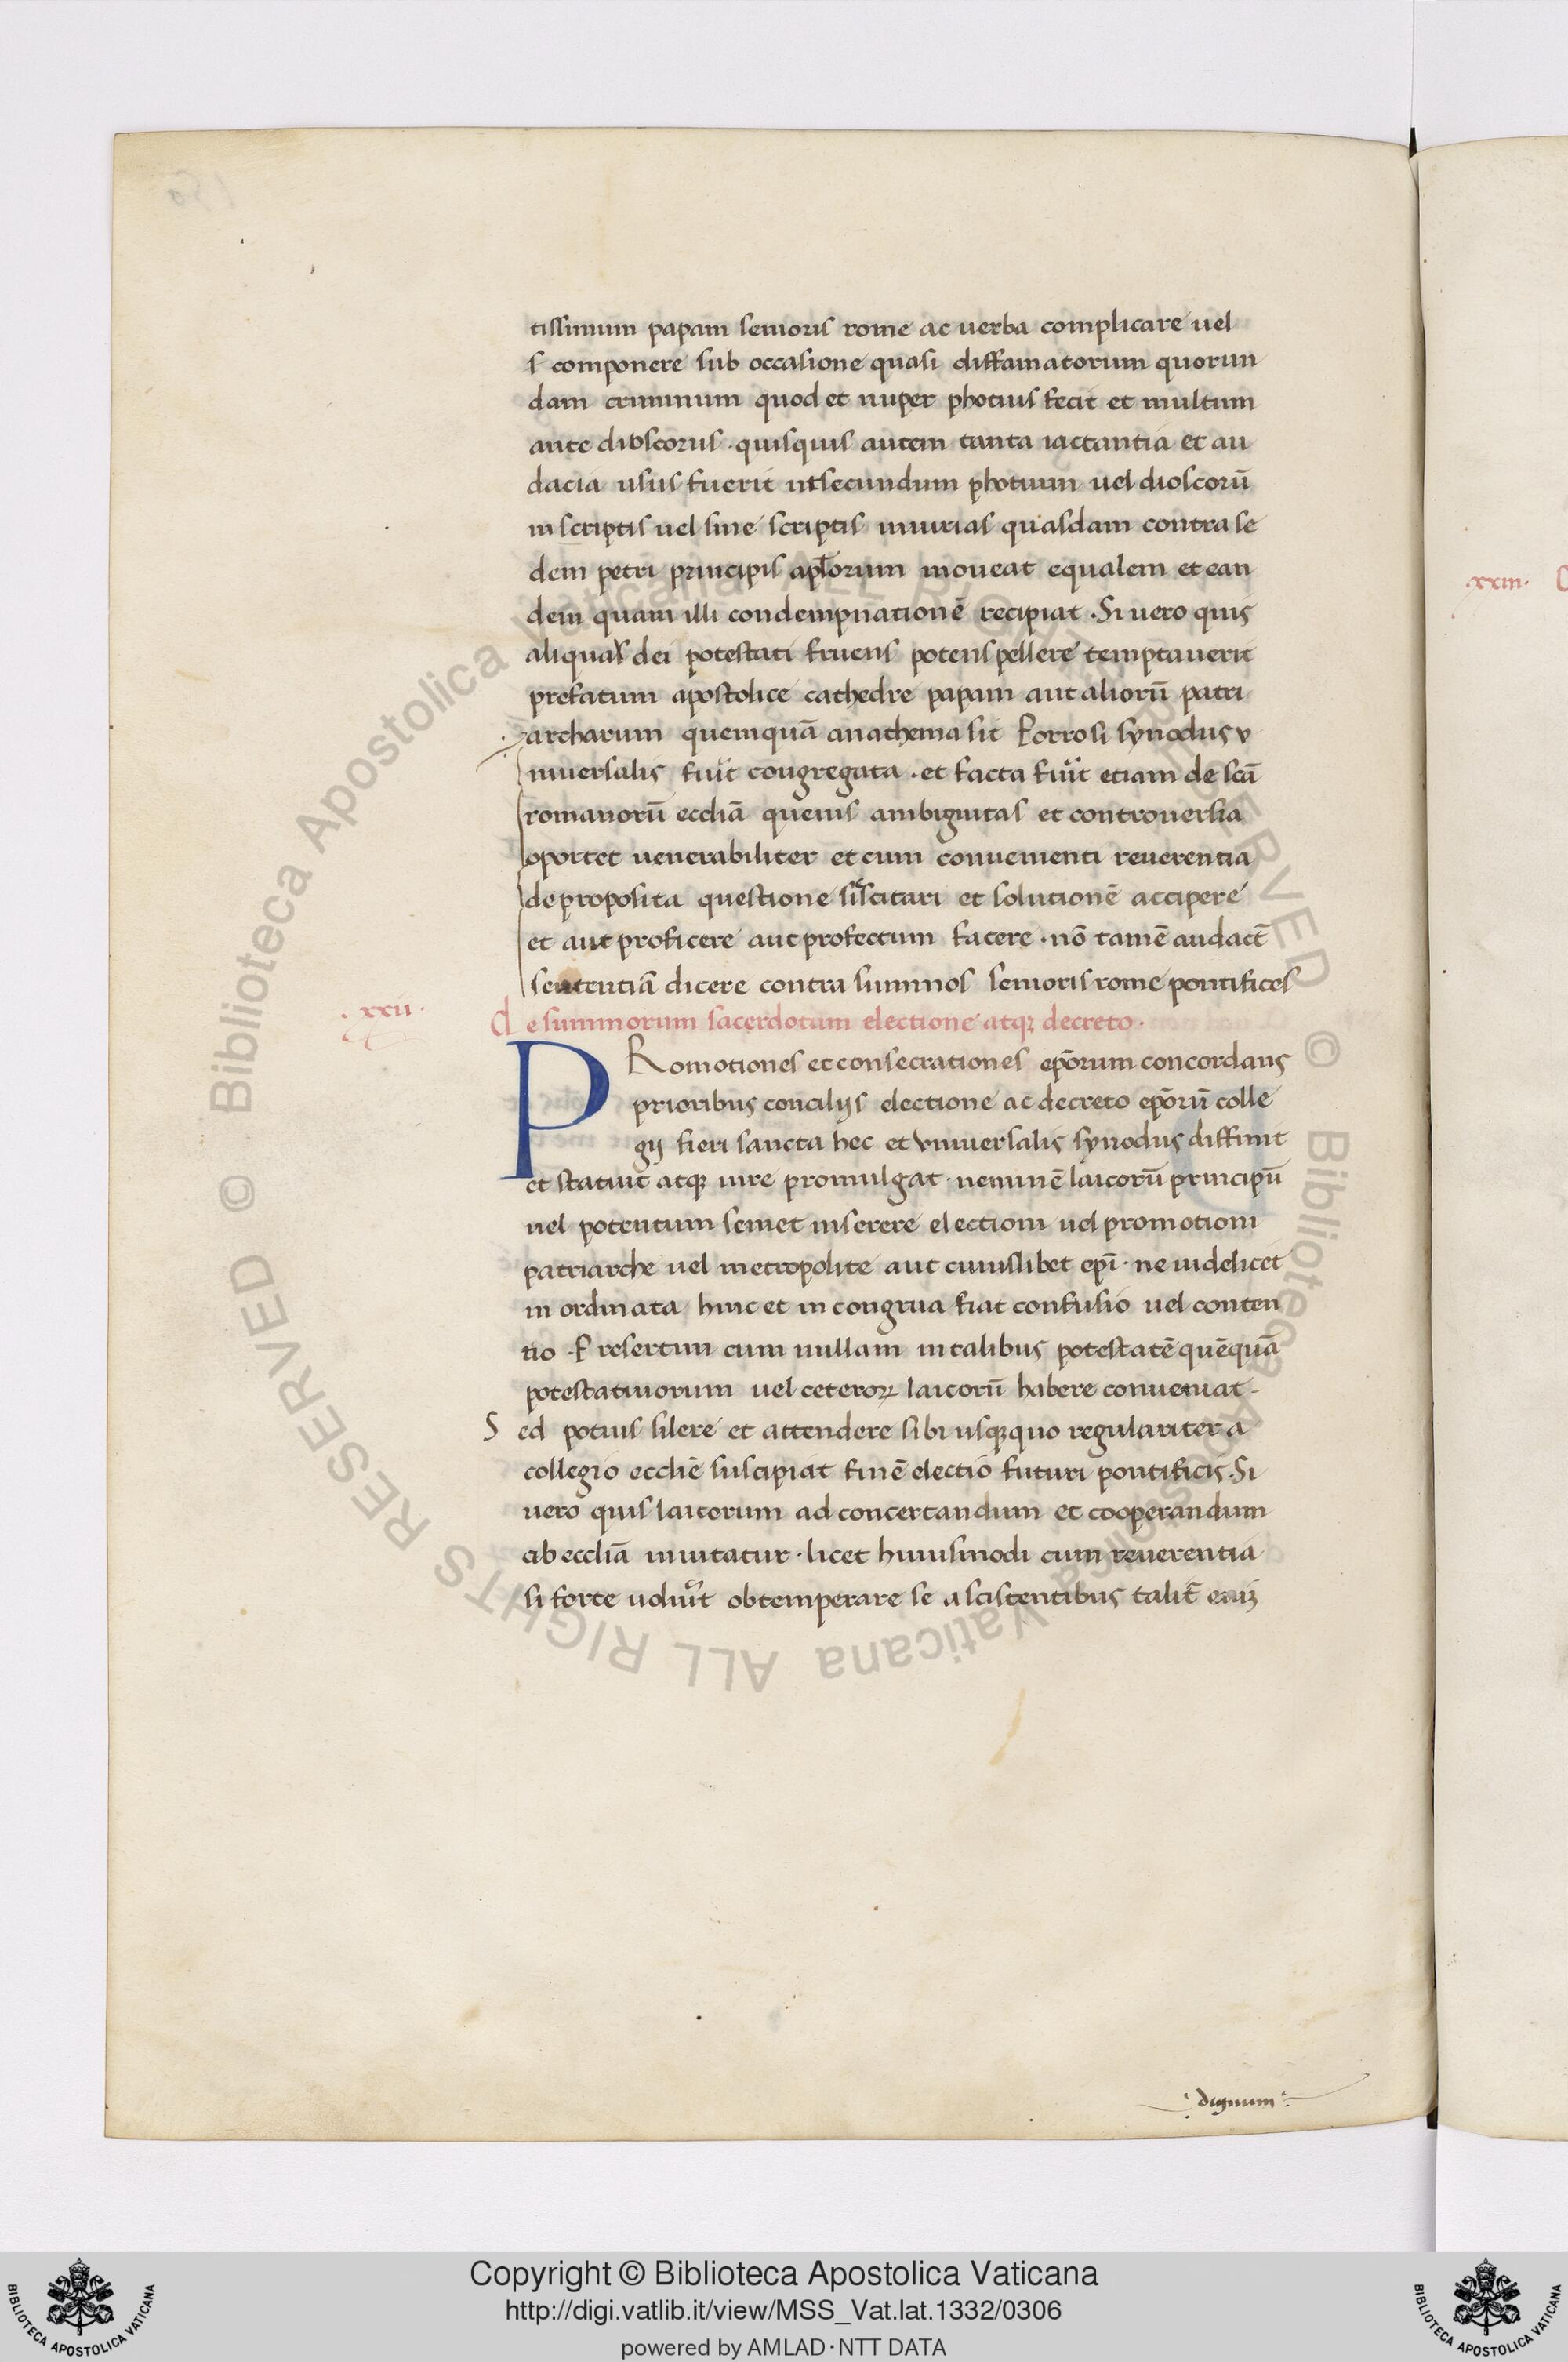 tissimum papam senioris rome ac uerba complicare uel
s componere sub occasione quasi diffamatorum quorun
dam criminum quod et nuper photius fecit et multum
ante dioscorus · quisquis autem tanta iactantia et au
dacia usus fuerit ut secundum photium uel dioscorū
in scriptis uel sine scriptis iniurias quasdam contra se
dem petri principis apl̄orum moueat equalem et ean
dem quam illi condempnationē recipiat · Si uero quis
aliqua dei potestati fruens potens pellere temptauerit
prefatum apostolice cathedre papam aut aliorū patri
archarum quemquā anathema sit Porro si synodus v
niuersalis fuit congregata · et facta fuit etiam de scā
romanorū eccliā queuis ambiguitas et controuersia
oportet uenerabiliter et cum conuenienti reuerentia
de proposita questione siscitari et solutionē accipere
et aut proficere aut profectum facere · nō tamē audact̄
sententiā dicere contra summos senioris rome pontifices
· xxii ·
de summorum sacerdotum electione atqꝫ decreto ·
PRomotiones et consecrationes ep̄orum concordans
prioribus concilijs electione ac decreto ep̄orū colle
gij fieri sancta hec et vniuersalis synodus diffinit
et statuit atqꝫ iure promulgat · neminē laicorū principū
uel potentum semet inserere electioni uel promotioni
patriarche uel metropolite aut cuiuslibet ep̄i · ne uidelicet
in ordinata hinc et in congrua fiat confusio uel conten
tio · Presertim cum nullam in talibus potestatē quēquā
potestatiuorum uel ceteroꝝ laicorū habere conueniat ·
Sed potius silere et attendere sibi usqꝫ quo regulariter a
collegio eccliē suscipiat finē electio futuri pontificis · Si
uero quis laicorum ad concertandum et cooperandum
ab eccliā inuitatur · licet huiusmodi cum reuerentia
si forte uoluit obtemperare se asciscentibus talit̄ eniꝫ
: dignum :
· xxiii ·
Copyright © Biblioteca Apostolica Vaticana
http://digi.vatlib.it/view/MSS_Vat.lat.1332/0306
powered by AMLAD·NTT DATA
© Biblioteca Apostolica Vaticana ALL RIGHTS RESERVED © Biblioteca Apostolica Vaticana ALL RIGHTS RESERVED
BIBLIOTECA APOSTOLICA VATICANA
BIBLIOTECA APOSTOLICA VATICANA